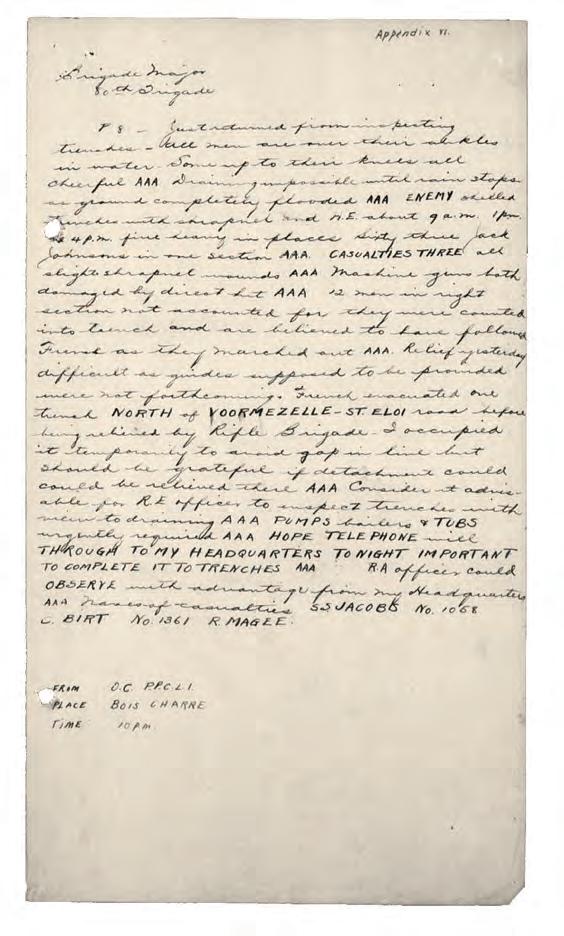 Appendix VI.
Brigade Major
80th Brigade
P 8 - Just returned from inspecting
trenches - All men are over their ankles
in water. Some up to their knees all
cheerful AAA Draining impossible until rain stops
as ground completely flooded AAA ENEMY shelled
trenches with shrapnel and H.E. about 9 a.m. 1 pm.
& 4 P.M. fire heavy in places Sixty three Jack
Johnsons in one section AAA. CASUALTIES THREE all
slight shrapnel wounds AAA Machine guns both
damaged by direct hit AAA 12 men in right
section not accounted for they were counted
into trench and are believed to have followed
French as they marched out AAA. Relief yesterday
difficult as guides supposed to be provided
were not forthcoming. French evacuated one
trench NORTH of VOORMEZELLE-ST. ELOI road before
being relieved by Rifle Brigade. I occupied
it temporarily to avoid gap in line but
should be grateful if detachment could
could be relieved there AAA Consider it advis-
able for R.E officer to inspect trenches with
view to draining AAA PUMPS bailers & TUBS
urgently required AAA HOPE TELEPHONE will
THROUGH TO MY HEADQUARTERS TO NIGHT IMPORTANT
TO COMPLETE IT TO TRENCHES AAA RA officer could
OBSERVE with advantage from my Headquarters
AAA Names of casualties S.S JACOBS No. 1068
C. BIRT No. 1361 R. MAGEE.
FROM O.C. P.P.C.L.I.
PLACE BOIS CHARRE
TIME 10 P.M.